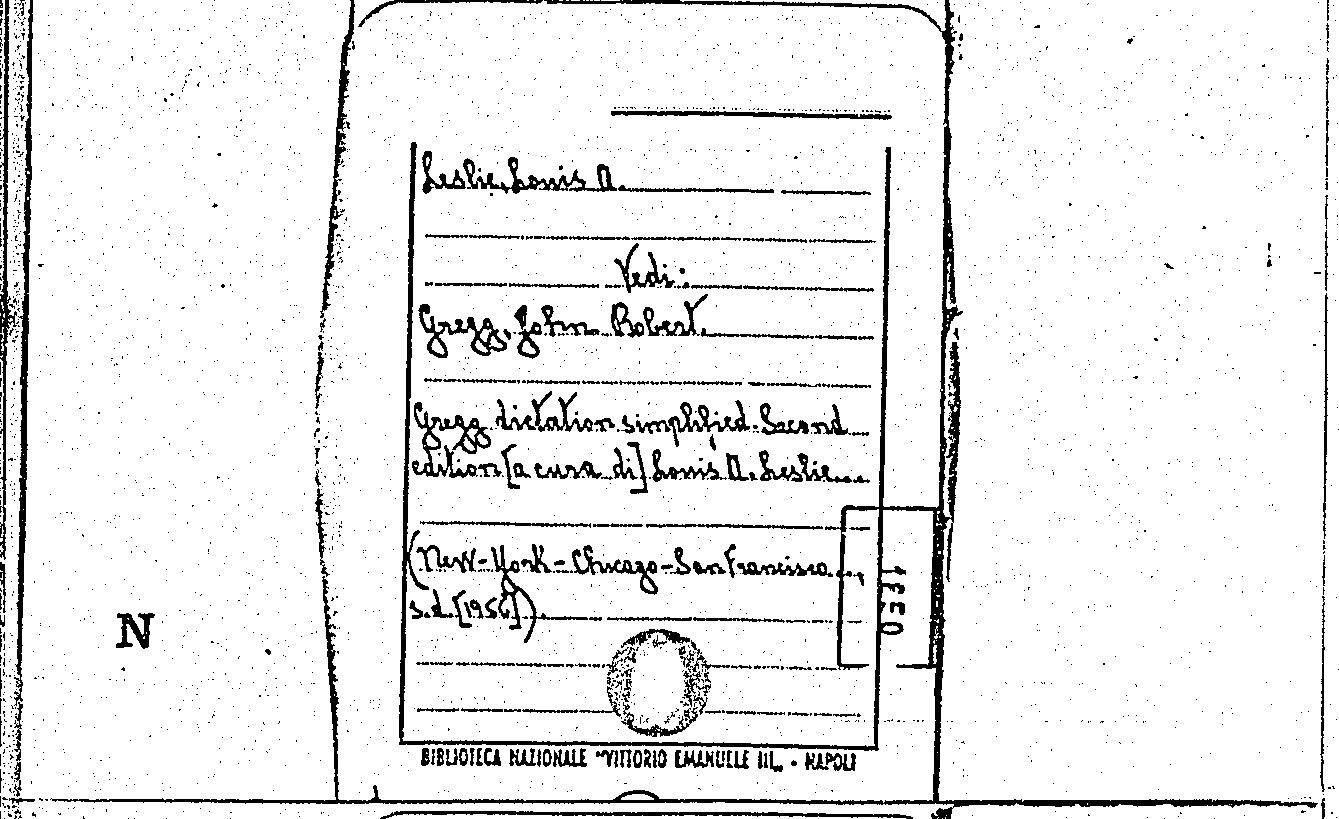 Leslie, Louis A.
Vedi:
Gregg, John Robert.
Gregg dictation simplified. Second
edition [a cura di] Louis A. Leslie...
(New-York-Chicago-San Francisco...,
s.d. [1956]).
N
BIBLIOTECA NAZIONALE "VITTORIO EMANUELE III„ - NAPOLI